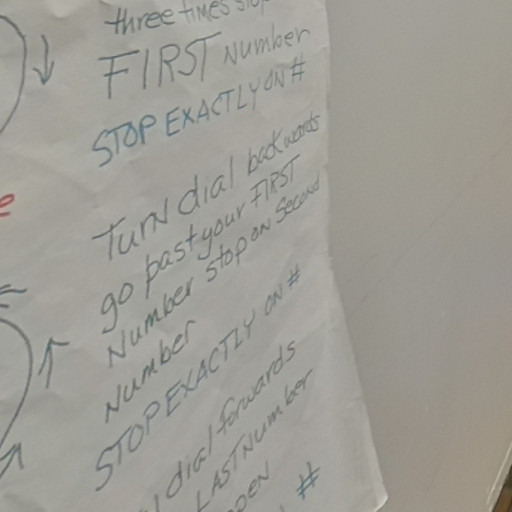 three times stop
FIRST Number
STOP EXACTLY ON #
Turn dial backwards
go past your FIRST
Number stop on Second
Number
STOP EXACTLY ON #
dial forwards
LAST Number
#